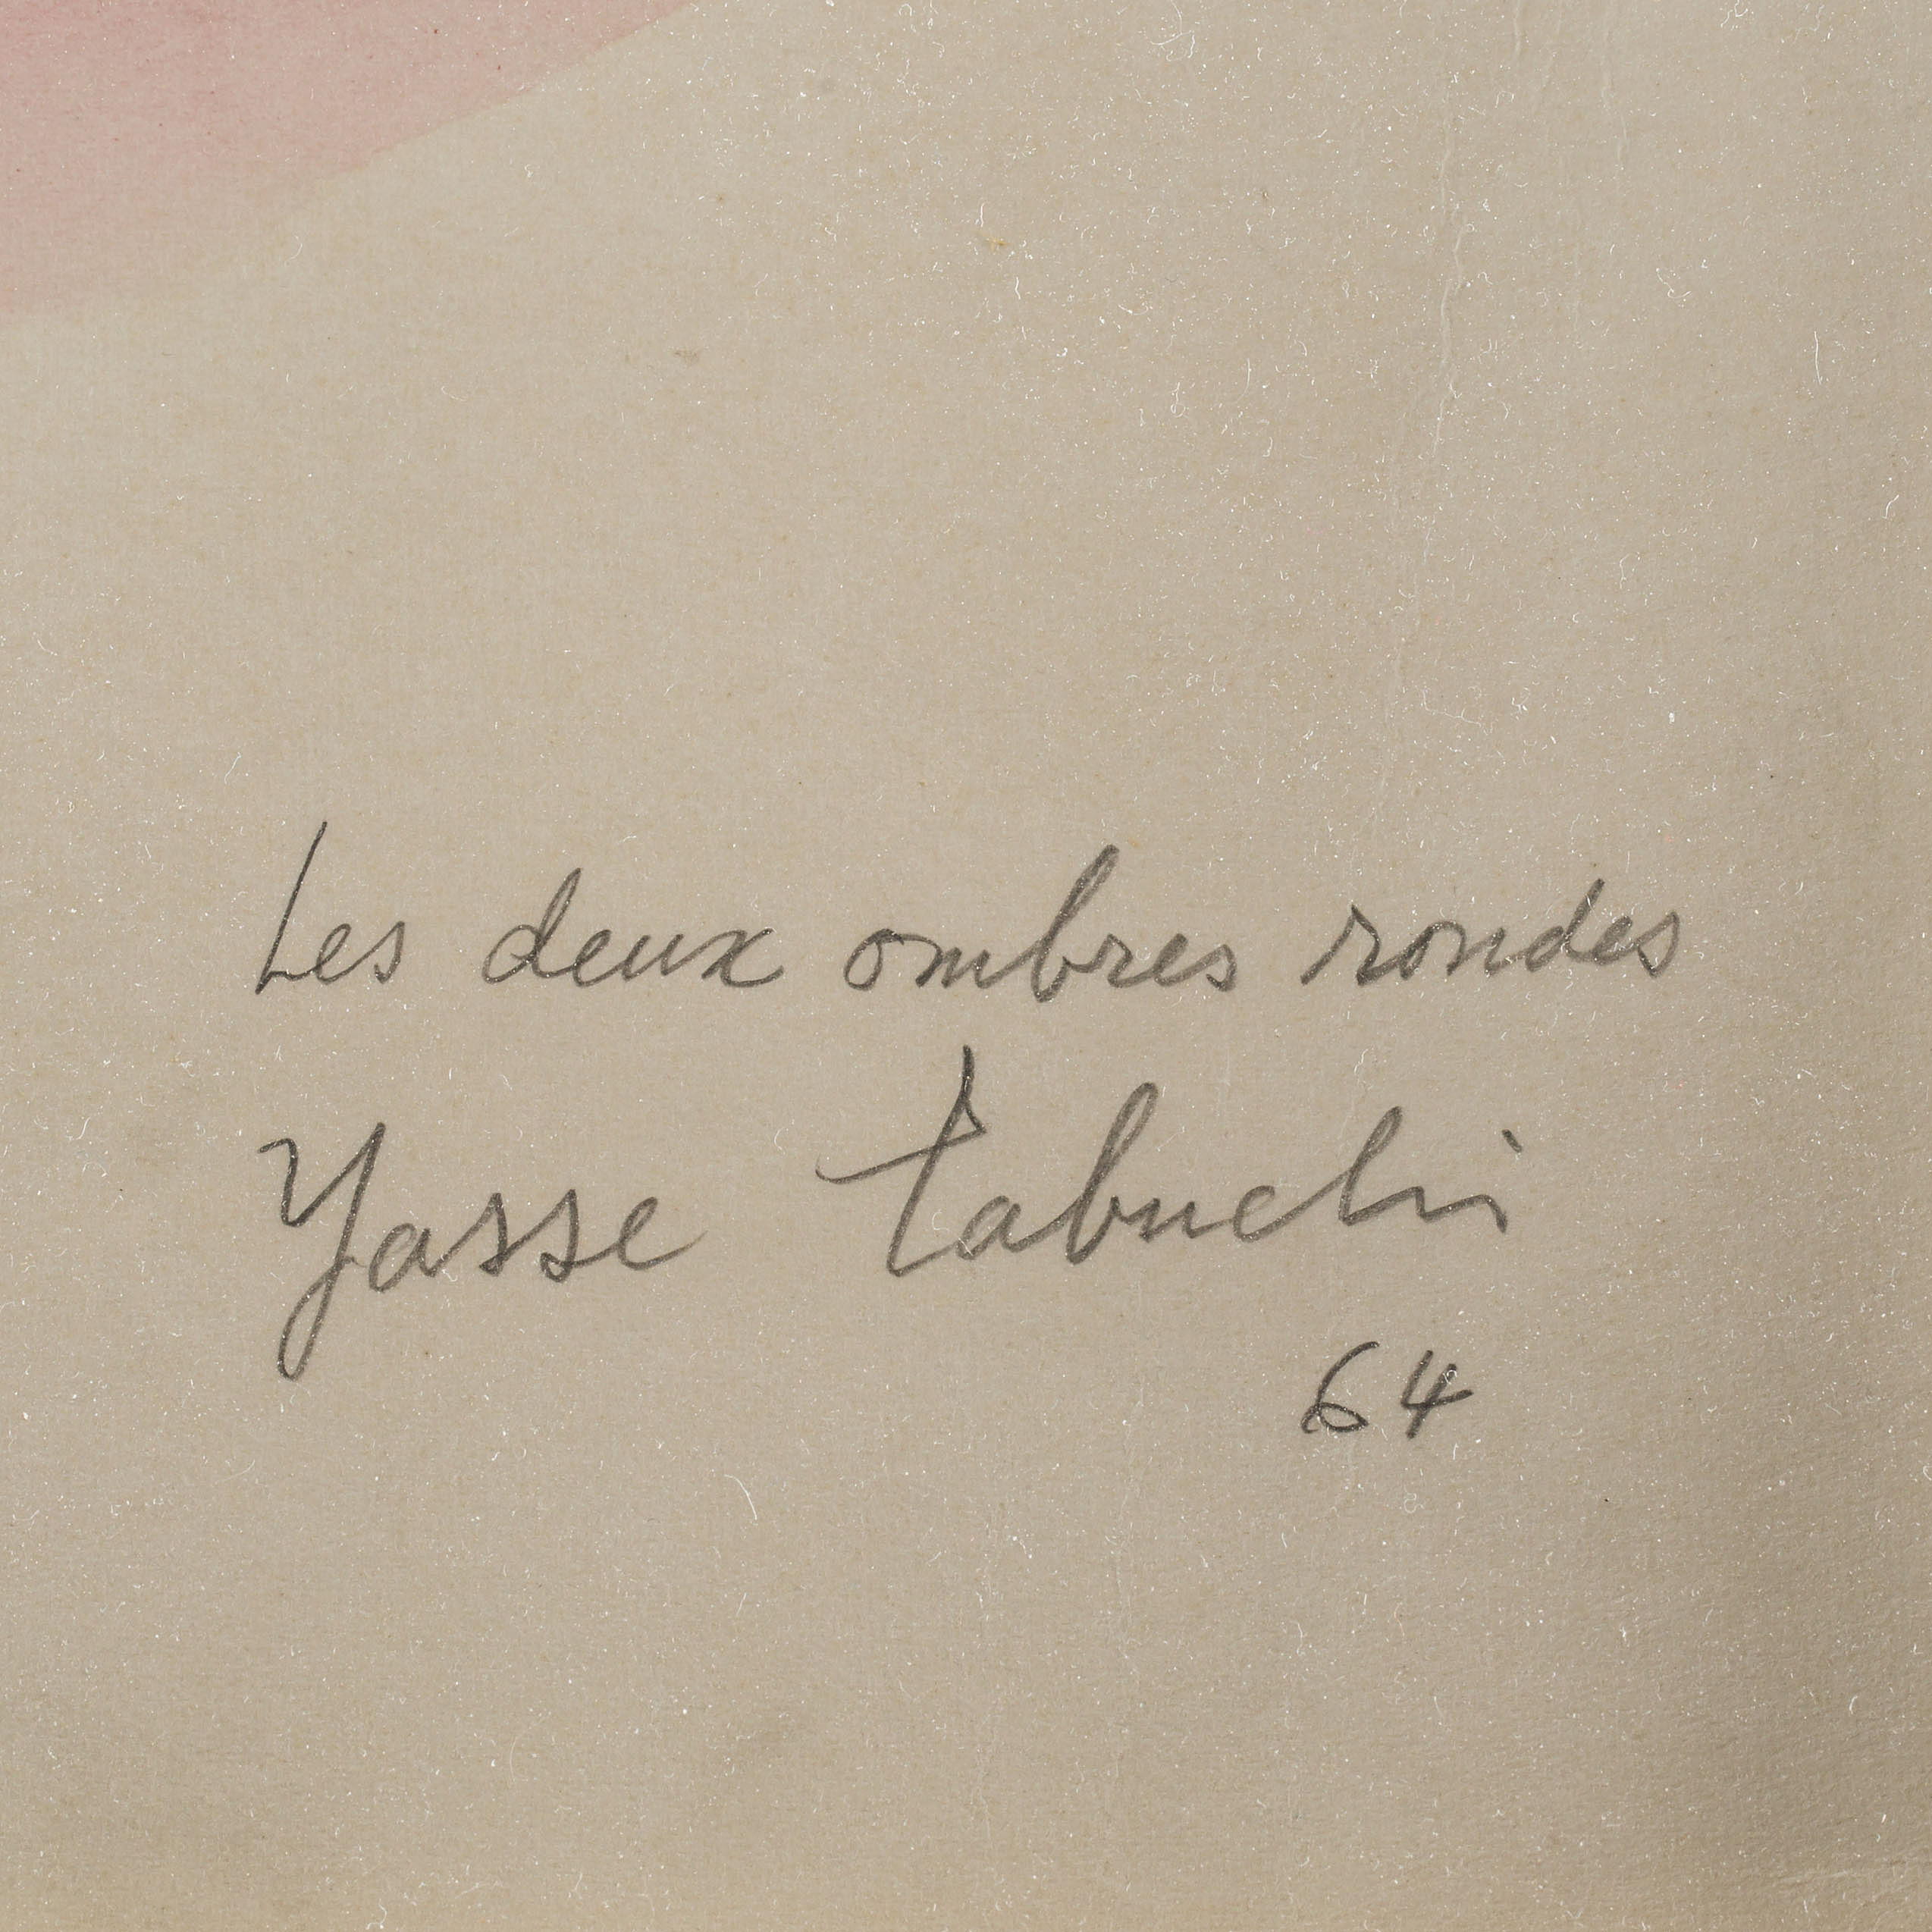 Les deux ombres rondes
Yasse Tabuchi
64